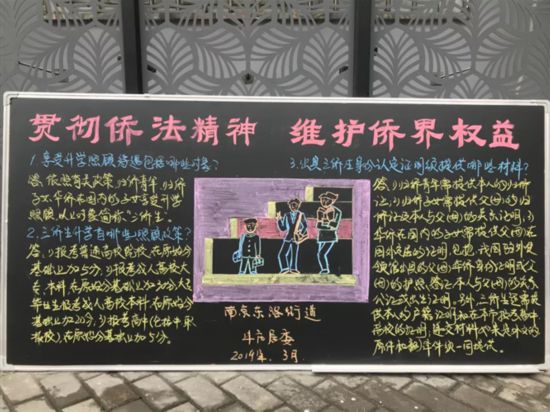 贯彻侨法精神 维护侨界权益
1.享受升学照顾待遇包括哪些对象?
答:依照有关政策,归侨青年、归侨
子女、华侨在国内的子女享受升学
照顾,以上对象简称"三侨生"。
2.三侨生升学有哪些照顾政策?
答:1)报考普通高校院校,在原始分
基础上加5分;2)报考成人高校
专、本科,在原始分基础上加
毕业生报考成人高校本科,在原始分
基础上加20分;3)报考高中(包括中职
院校),在原始分基础上加5分。
南京东路街道
居委
2019年.3月
3.出具三侨生身份认定证明须提供哪些材料?
答:1)归侨青年需提供本人的归侨
证;2)归侨子女需提供父(母)的归
侨证及本人与父(母)的关系证明;3)
华侨在国内的子女需提供父(母)在
国外定居的证明,包括:我国的外交
领馆出具的父(母)华侨身份证明或父
(母)的护照、签证、本人与父(母)的关系
公证或出生证明。另外,三侨生还需提
供本人的户籍证明和在本市报考高中
高校的证明,递交材料如果是外文的
原件和翻译件须一同提供。